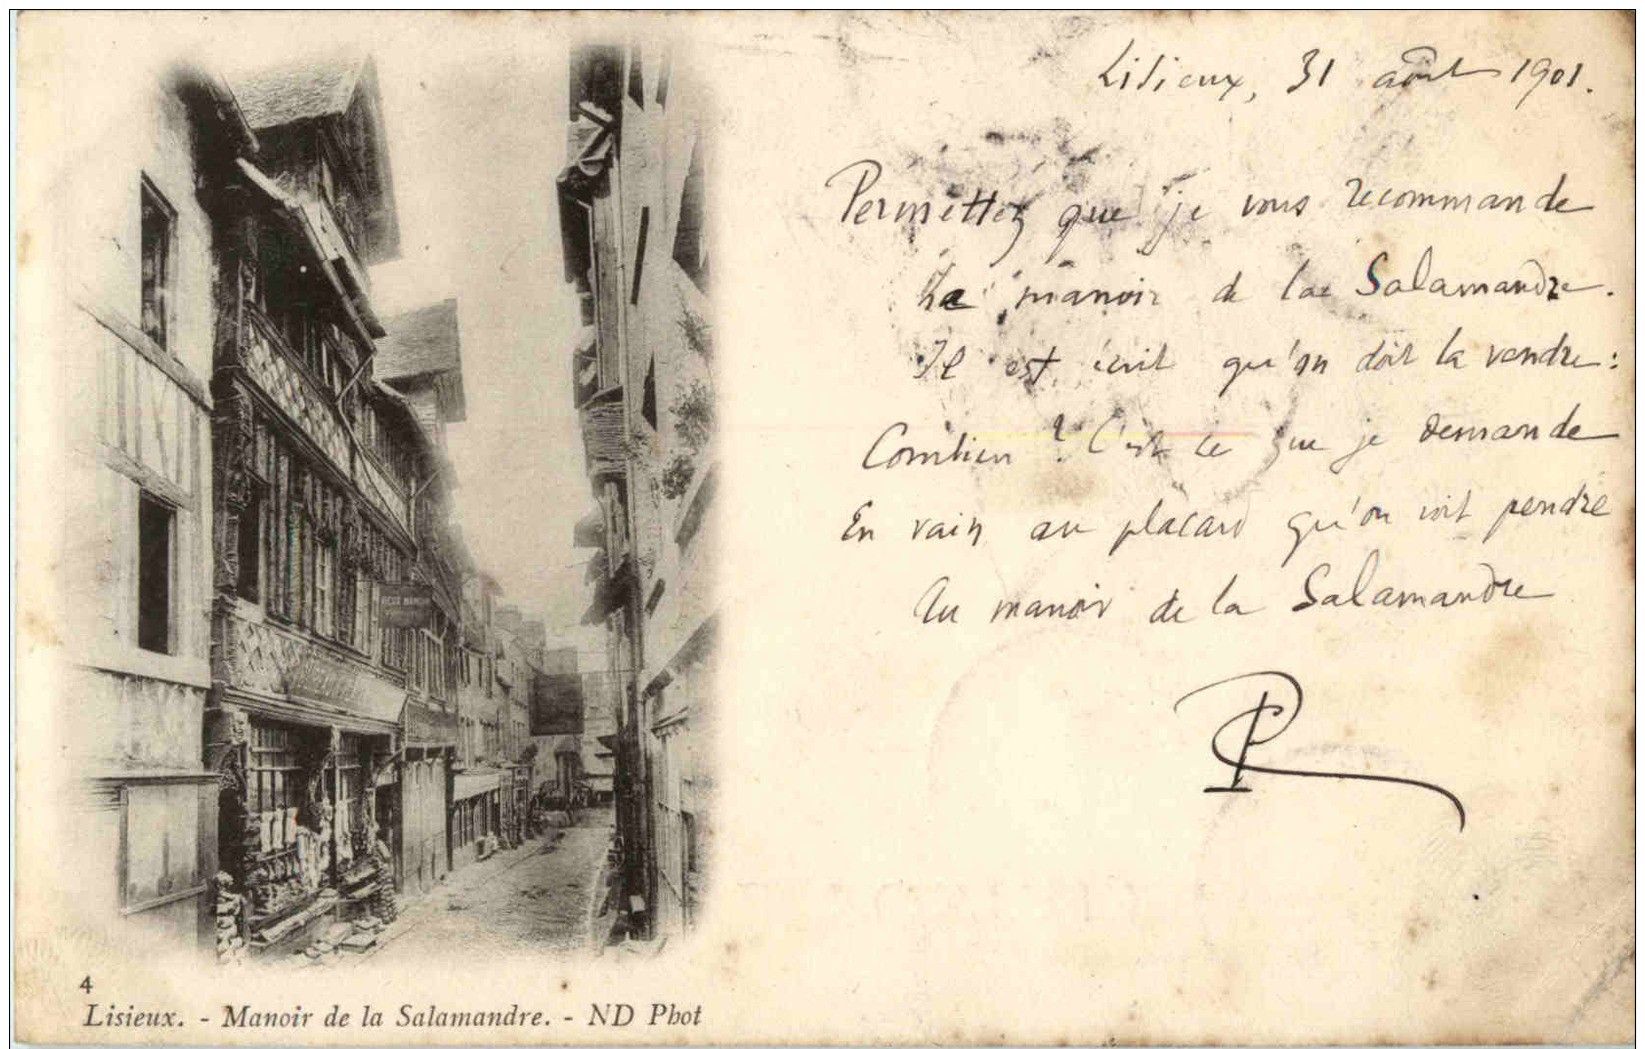 Lisieux, 31 août 1901.
Permettez que je vous recommande
Le manoir de la Salamandre.
Il est écrit qu'on doit la vendre :
Combien ? C'est ce que je demande
En vain au placard qu'on voit pendre
Au manoir de la Salamandre
VIEUX MANOIR
4
Lisieux. - Manoir de la Salamandre. - ND Phot